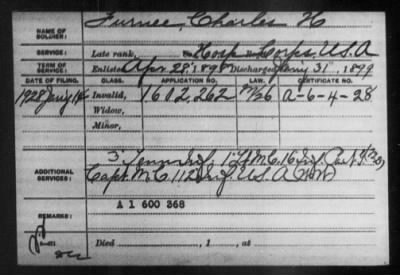 NAME OF SOLDIER: Furnee, Charles H
SERVICE: Late rank, Hosp Corps, U.S.A
TERM OF SERVICE: Enlisted Apr 28, 1898 Discharged 31", 1899
DATE OF FILING. CLASS. APPLICATION NO. LAW. CERTIFICATE NO.
1928 Invalid, 1,602,262 A-6-4-28
Widow,
Minor,
ADDITIONAL SERVICES: 3" 1" Lt M.C. 16 Inf
Capt. M.C. 112 Inf U.S.A
A 1 600 268
REMARKS:
Died , 1 , at